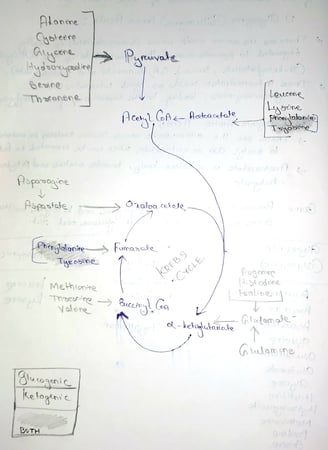 Alanine
Cysteine
Glycine
Hydroxyproline
Serine
Threonine
Pyruvate
Acetyl CoA
Acetoacetate
Leucine
Lysine
Phenylalanine
Tryptophan
Asparagine
Aspartate
Oxaloacetate
Phenylalanine
Tyrosine
Fumarate
KREBS
CYCLE
Methionine
Valine
Succinyl CoA
α-ketoglutarate
Arginine
Histidine
Proline
Glutamate
Glutamine
Glucogenic
Ketogenic
BOTH